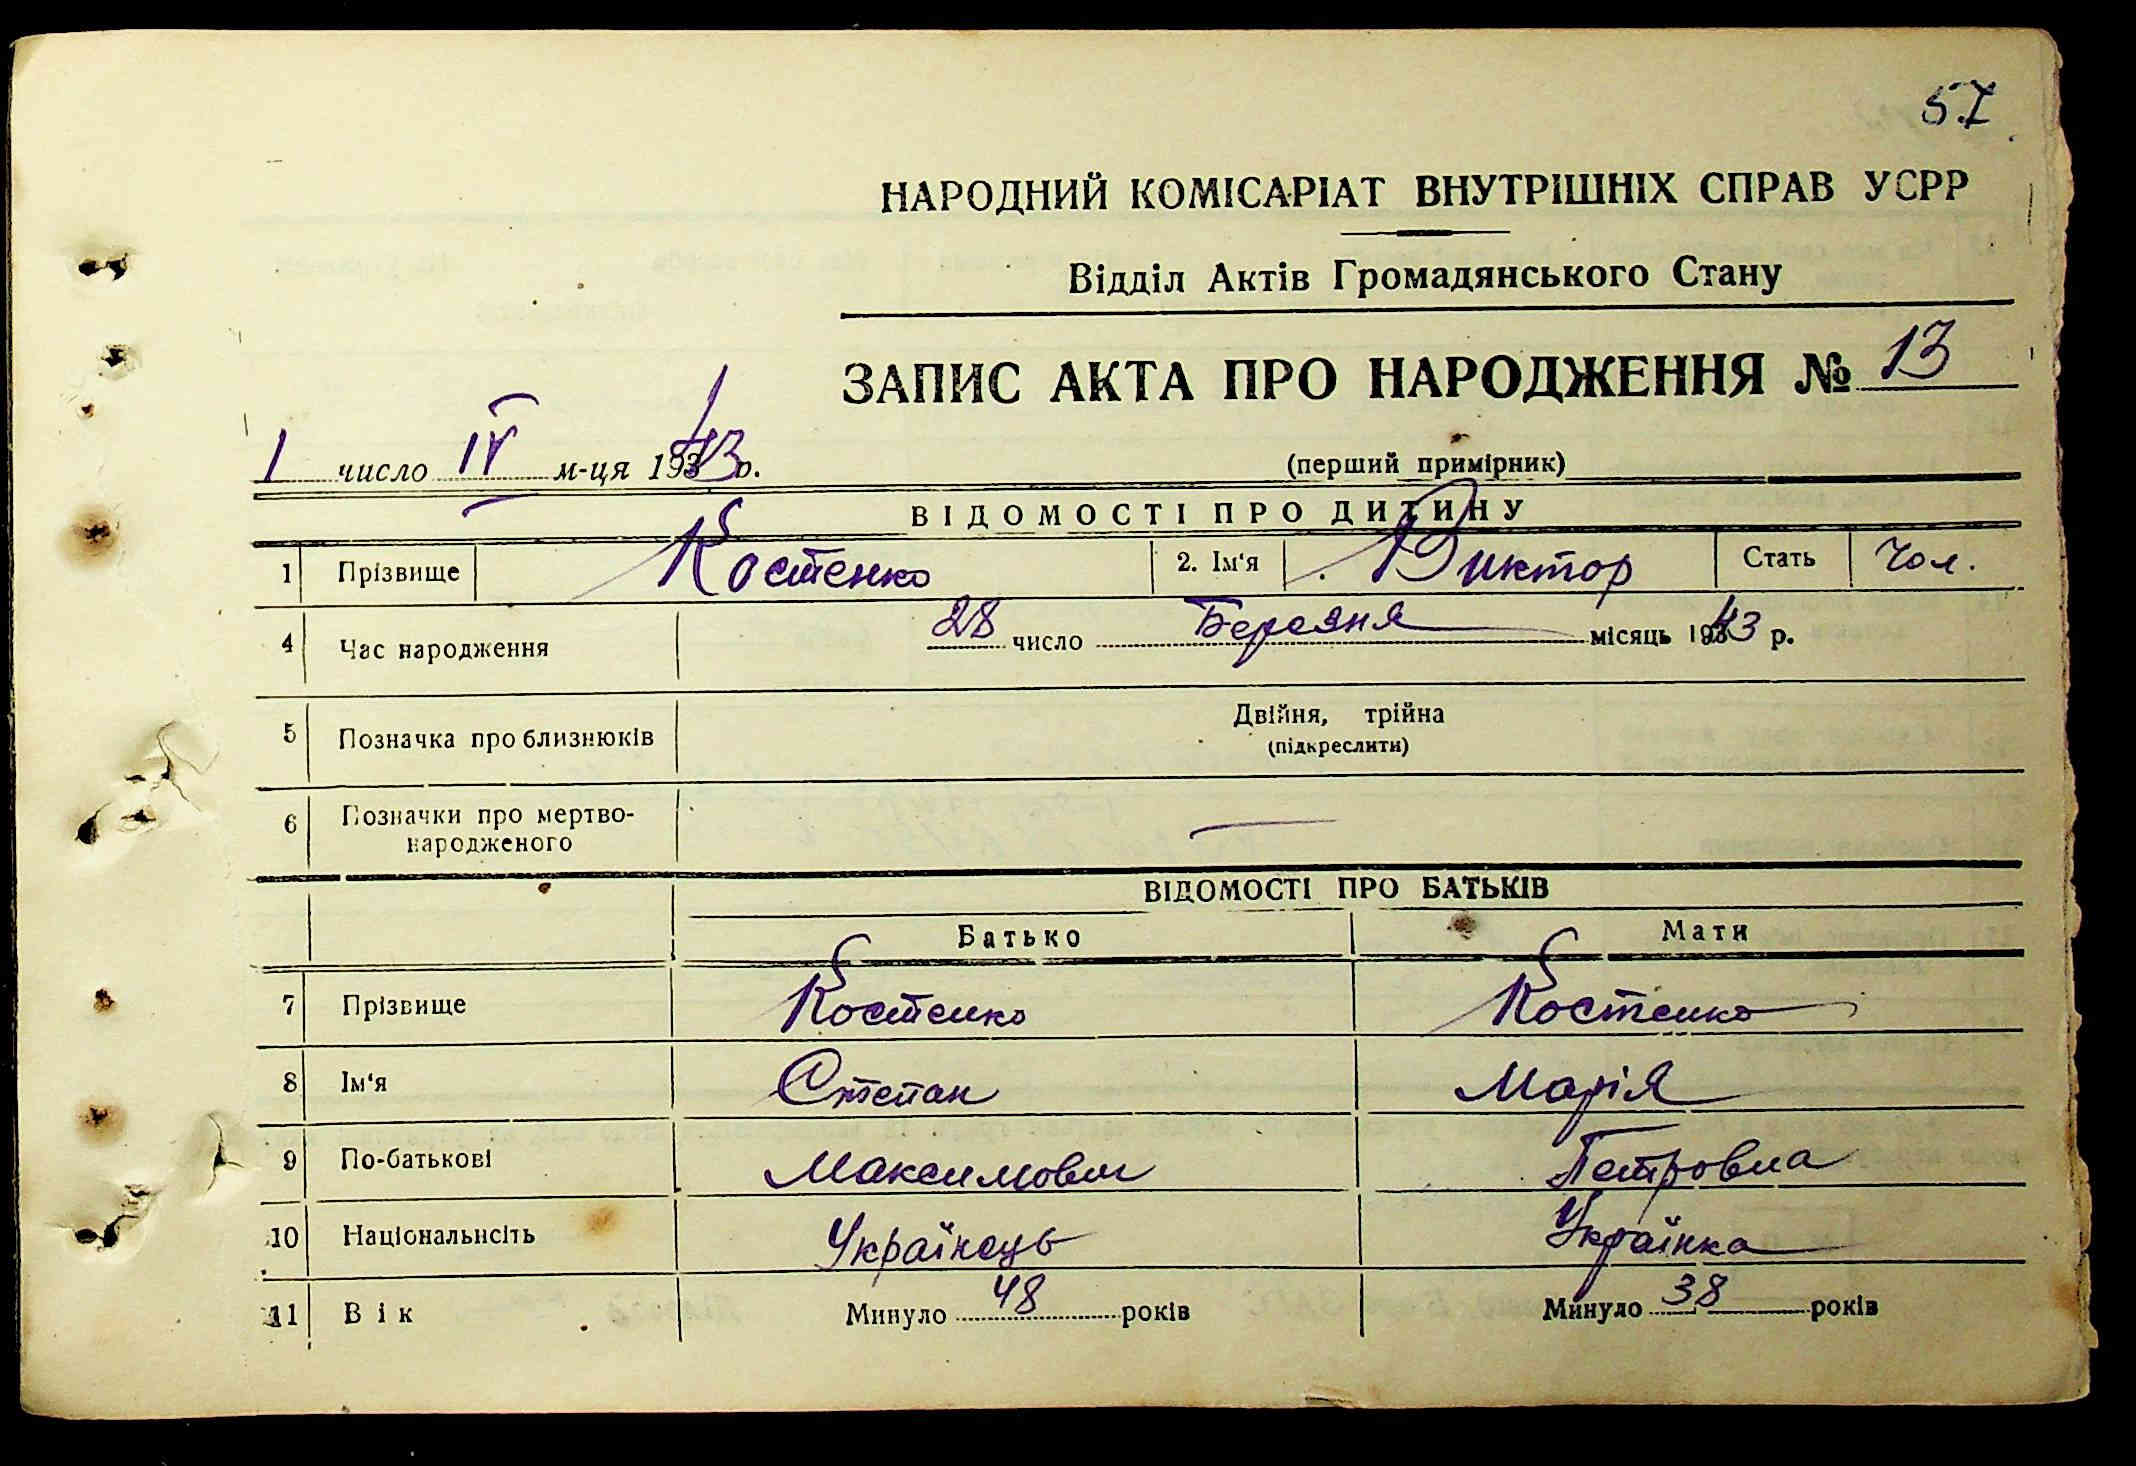 57
НАРОДНИЙ КОМІСАРІАТ ВНУТРІШНІХ СПРАВ УСРР
Відділ Актів Громадянського Стану
ЗАПИС АКТА ПРО НАРОДЖЕННЯ № 13
1 число IV м-ця 1943 р.
(перший примірник)
ВІДОМОСТІ ПРО ДИТИНУ
1 Прізвище Костенко 2. Ім'я Виктор Стать Чол.
4 Час народження 28 число Березня місяць 1943 р.
5 Позначка про близнюків Двійня, трійна
(підкреслити)
6 Позначки про мертво-
народженого —
ВІДОМОСТІ ПРО БАТЬКІВ
Батько Мати
7 Прізвище Костенко Костенко
8 Ім'я Степан Марія
9 По-батькові Максимович Петровна
10 Національність Українець Українка
11 Вік Минуло 48 років Минуло 38 років